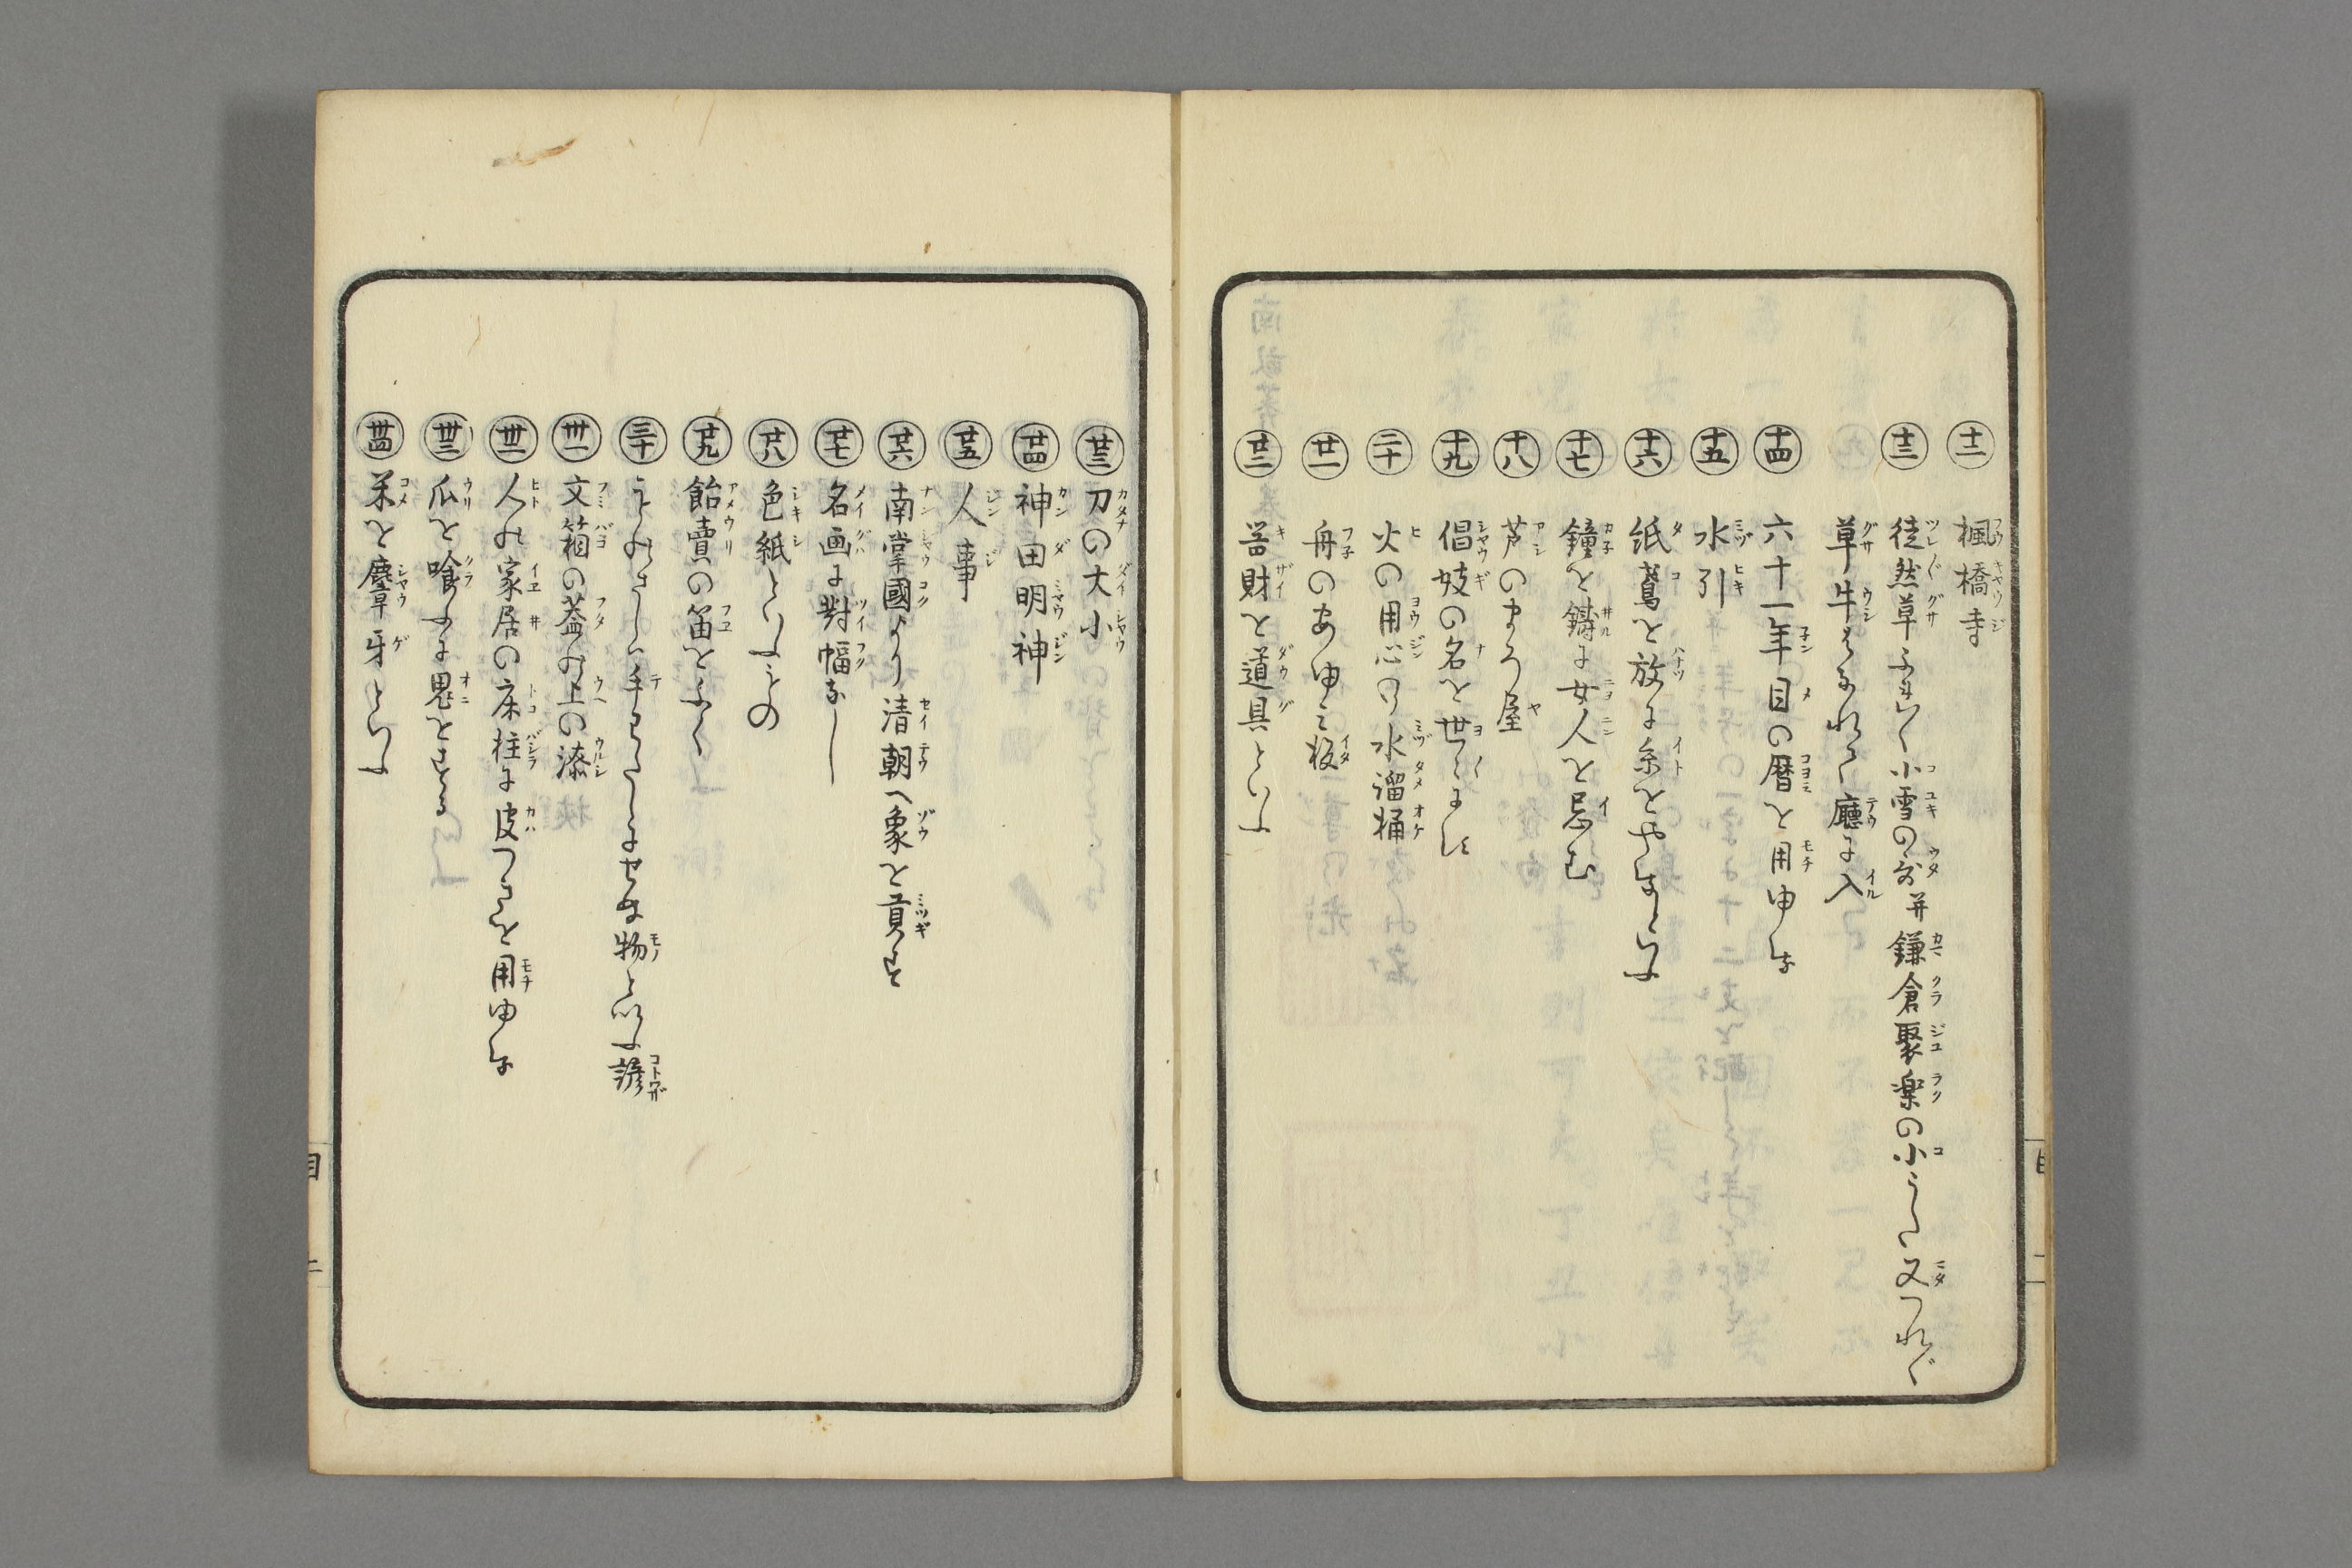 十二 楓橋寺
十三 徒然草ふれ〳〵小雪の哥并鎌倉聚楽の小うた又つれ〴〵
草牛はなれて廳に入
十四 六十一年目の暦を用ゆる
十五 水引
十六 紙鳶を放に糸をやるといふ
十七 鐘を鑄に女人を忌む
十八 芦のまろ屋
十九 倡妓の名を世〻にす
二十 火の用心の水溜桶
廿一 舟のあゆみ板
廿二 器財を道具といふ
廿三 刀の大小
廿四 神田明神
廿五 人事
廿六 南掌國より清朝へ象を貢す
廿七 名画に對幅なし
廿八 色紙といふもの
廿九 飴賣の笛をふく
三十 手わたしにせぬ物といふ諺
卅一 文箱の蓋の上の漆
卅二 人の家居の床柱に皮つきを用ゆる
卅三 瓜を喰ふに鬼をする
卅四 米を麞牙といふ